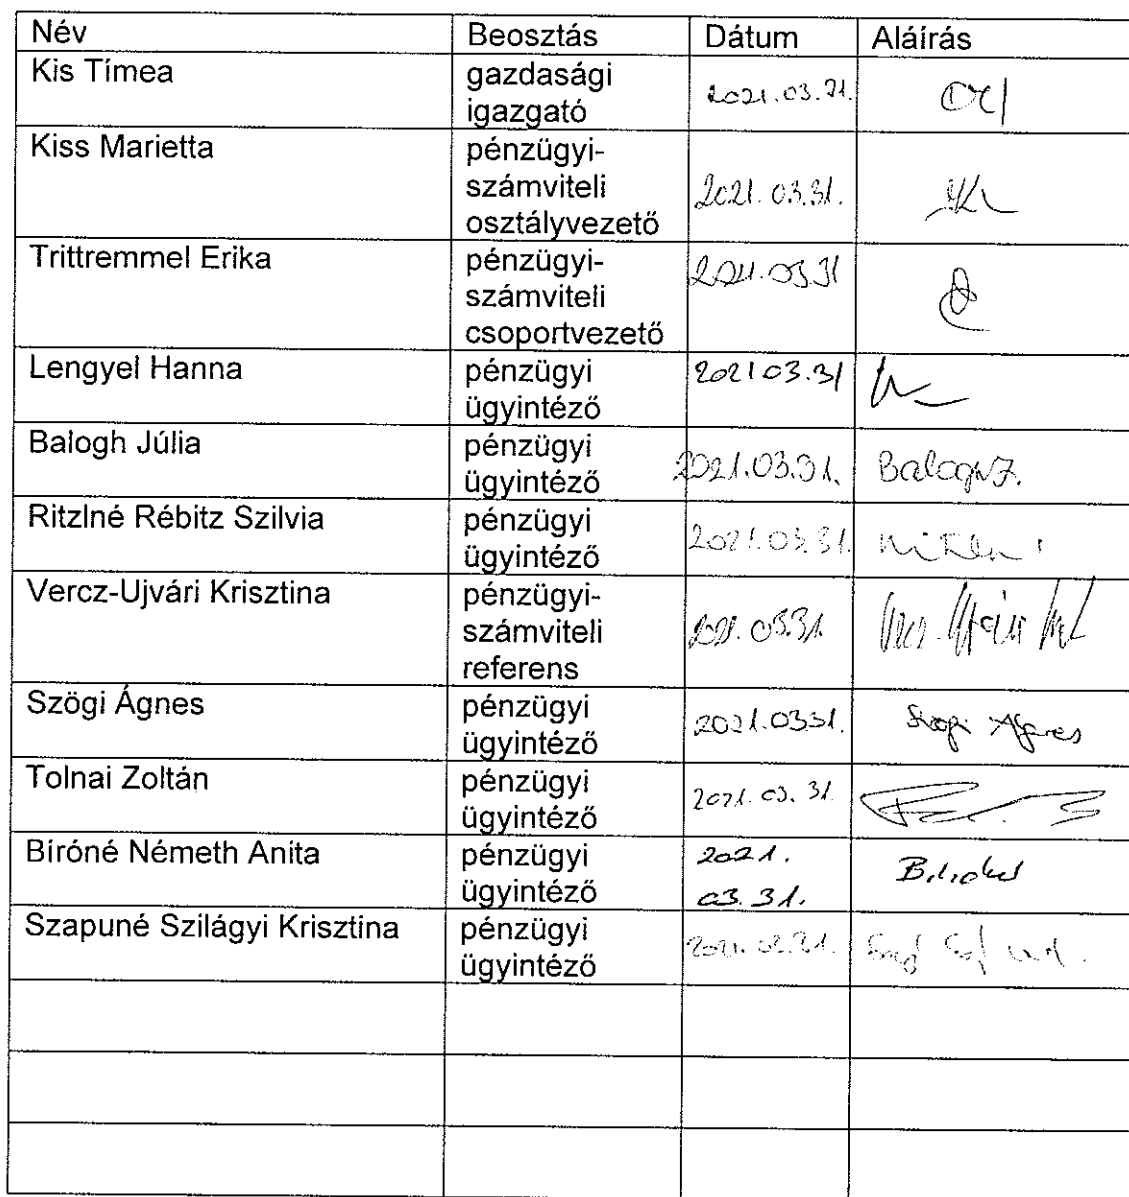 Név Beosztás Dátum Aláírás
Kis Tímea gazdasági
igazgató 2021.03.31.
Kiss Marietta pénzügyi-
számviteli 2021.03.31.
osztályvezető
Trittremmel Erika pénzügyi- 2021.03.31
számviteli
csoportvezető
Lengyel Hanna pénzügyi 2021.03.31
ügyintéző
Balogh Júlia pénzügyi
ügyintéző 2021.03.31. Balogh J.
Ritzlné Rébitz Szilvia pénzügyi
ügyintéző 2021.03.31.
Vercz-Ujvári Krisztina pénzügyi-
számviteli 2021.03.31.
referens
Szögi Ágnes pénzügyi
ügyintéző 2021.03.31. Szögi Ágnes
Tolnai Zoltán pénzügyi
ügyintéző 2021.03.31.
Bíróné Németh Anita pénzügyi 2021.
ügyintéző 03.31.
Szapuné Szilágyi Krisztina pénzügyi
ügyintéző 2021.03.31.